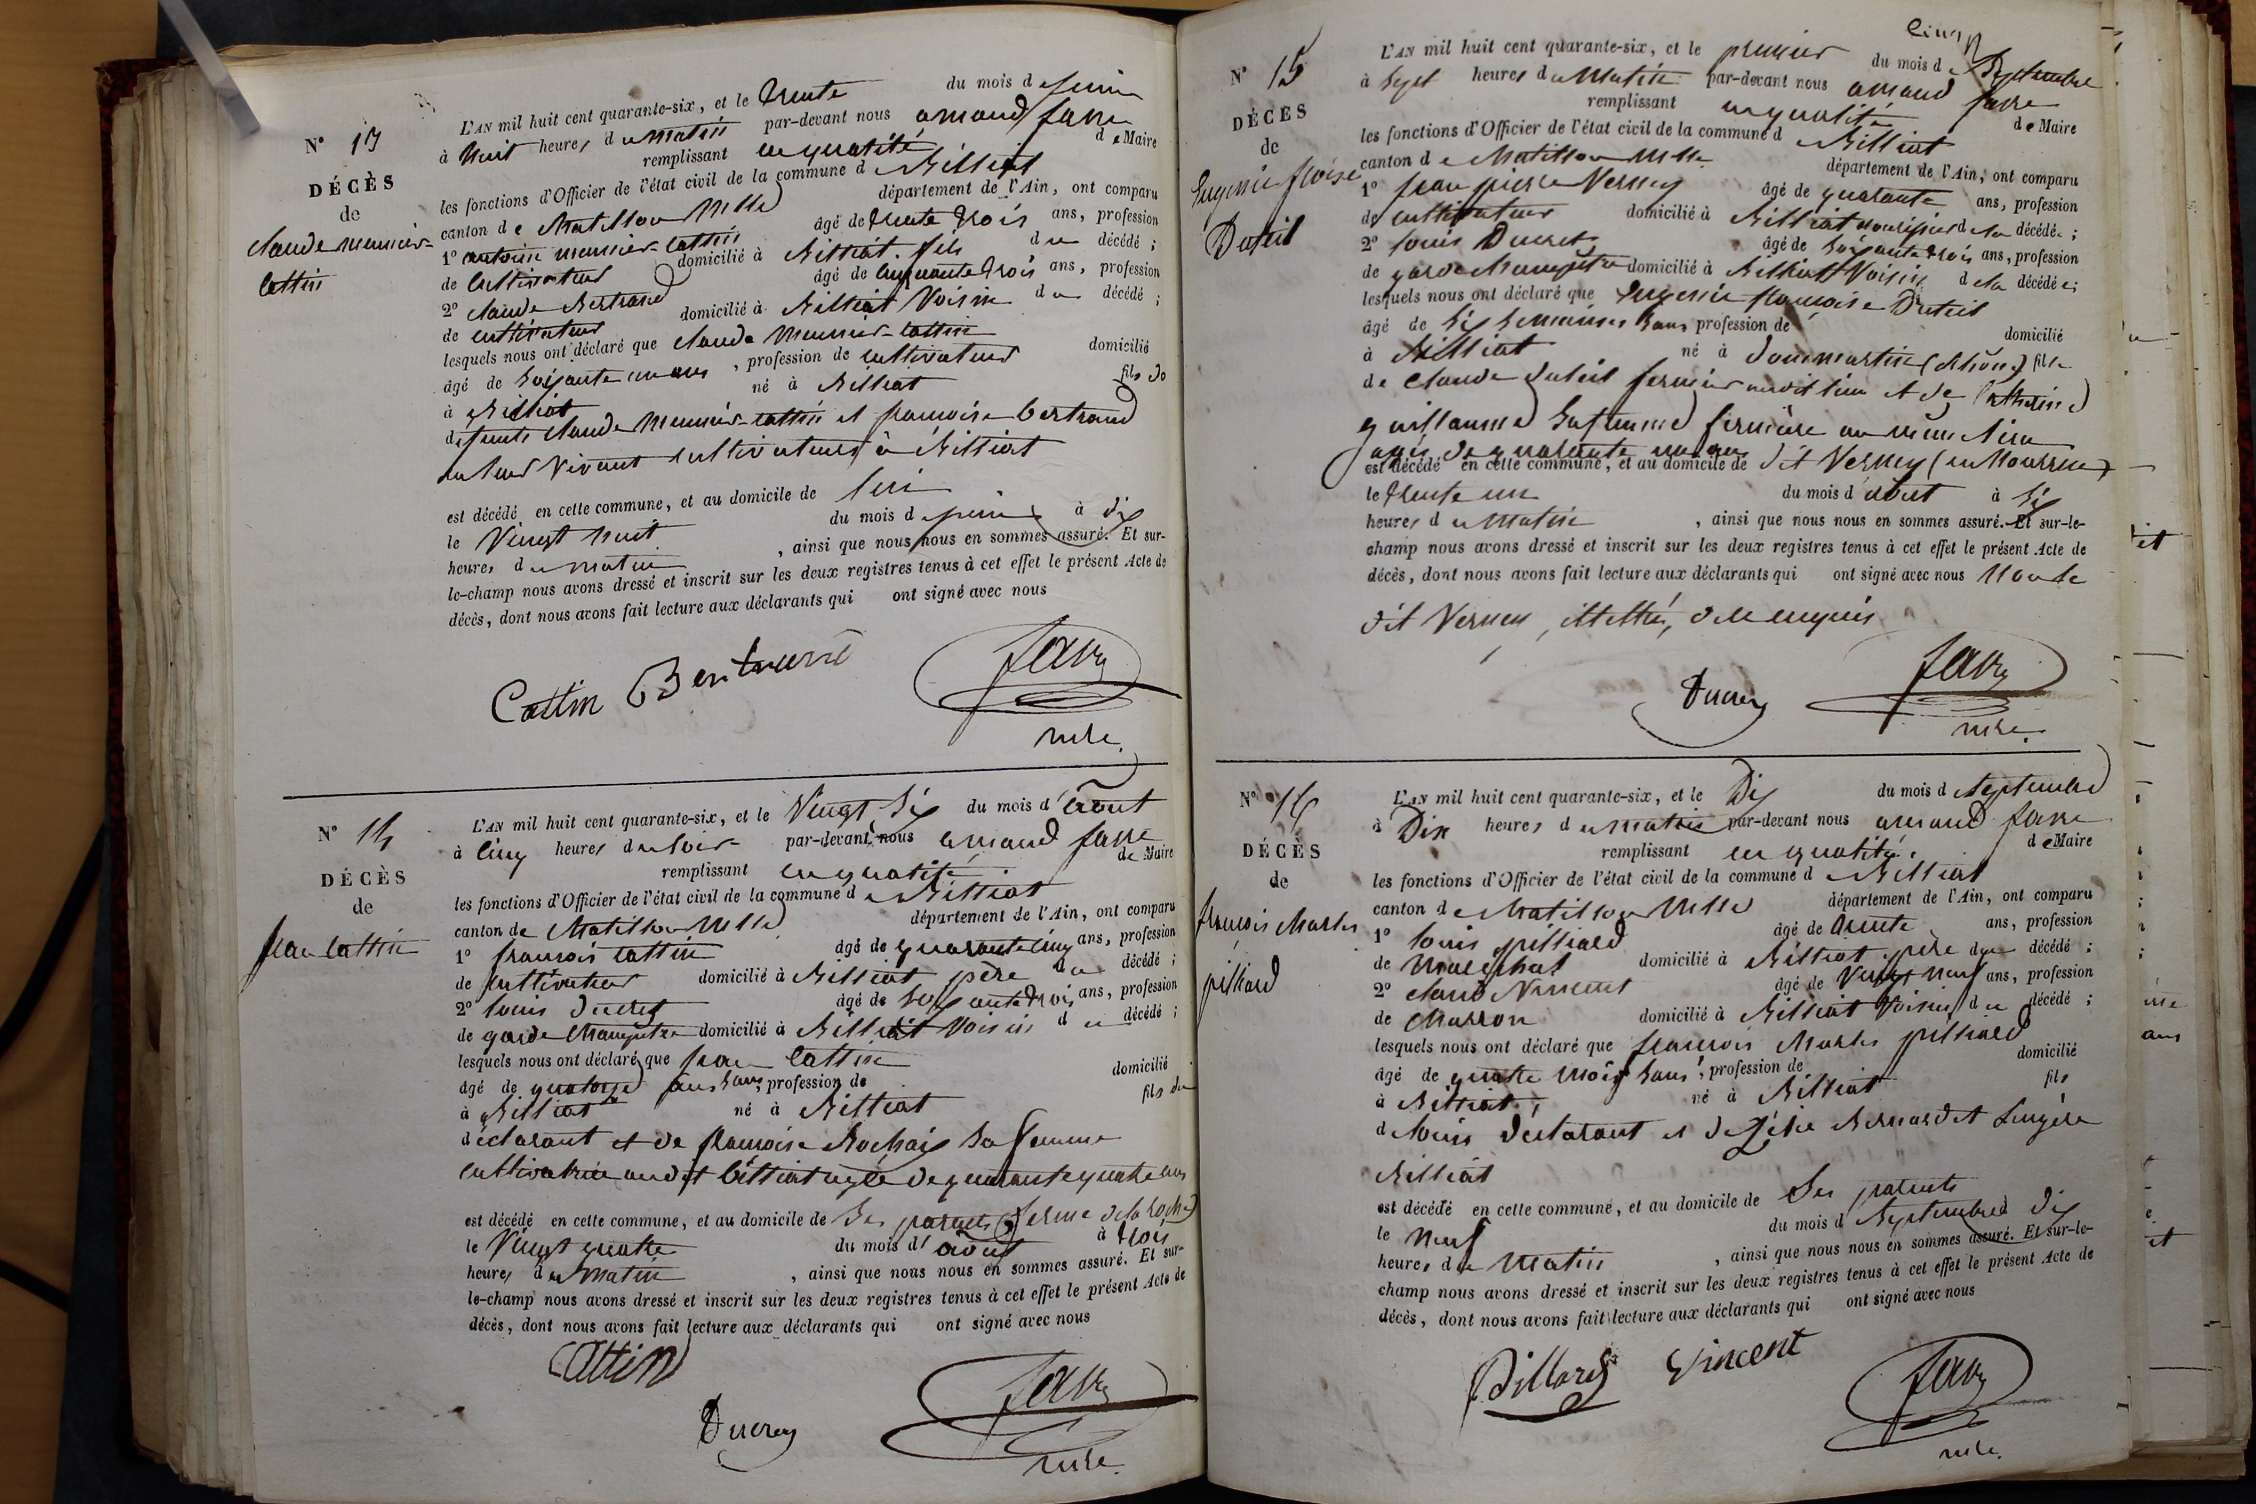 N° 13
DÉCÈS
de
claude meunier-
cattin
L'AN mil huit cent quarante-six, et le trente du mois de juin
à huit heures du matin par-devant nous amand favre
remplissant en qualité de Maire
les fonctions d'Officier de l'état civil de la commune de Billiat
canton de Chatillon Mlle département de l'Ain, ont comparu
1° antoine meunier cattin âgé de trente trois ans, profession
de cultivateur domicilié à Billiat. fils du décédé ;
2° claude Bertrand âgé de cinquante trois ans, profession
de cultivateur domicilié à Billiat Voisin du décédé ;
lesquels nous ont déclaré que claude Meunier-cattin
âgé de soixante un ans, profession de cultivateur domicilié
à Billiat né à Billiat fils de
defunts claude Meunier-cattin et francoise bertrand
en leur vivant cultivateurs à Billiat
est décédé en cette commune, et au domicile de lui
le Vingt huit du mois de juin à dix
heures du matin, ainsi que nous nous en sommes assuré. Et sur-
le-champ nous avons dressé et inscrit sur les deux registres tenus à cet effet le présent Acte de
décès, dont nous avons fait lecture aux déclarants qui ont signé avec nous
Cattin Bertrand favre
mre.
N° 14
DÉCÈS
de
jean cattin
L'AN mil huit cent quarante-six, et le Vingt six du mois d'août
à cinq heures du soir par-devant nous amand favre
remplissant en qualité de Maire
les fonctions d'Officier de l'état civil de la commune de Billiat
canton de Chatillon Mlle département de l'Ain, ont comparu
1° francois cattin âgé de quarante cinq ans, profession
de cultivateur domicilié à Billiat père du décédé ;
2° louis Ducret âgé de soixante trois ans, profession
de garde Champetre domicilié à Billiat Voisin du décédé ;
lesquels nous ont déclaré que jean cattin
âgé de quatorze ans sans, profession de domicilié
à Billiat né à Billiat fils du
déclarant et de francoise Rochaix sa femme
cultivatrice audit Billiat agée de quarante quatre ans
est décédé en cette commune, et au domicile de ses parents (ferme de la roche)
le Vingt quatre du mois d'août à trois
heures du Matin, ainsi que nous nous en sommes assuré. Et sur-
le-champ nous avons dressé et inscrit sur les deux registres tenus à cet effet le présent Acte de
décès, dont nous avons fait lecture aux déclarants qui ont signé avec nous
Cattin
Ducrey favre
mre.
Cinq
N° 15
DÉCÈS
de
Eugenie froise
Duteil
L'AN mil huit cent quarante-six, et le premier du mois de Septembre
à Sept heures du Matin par-devant nous amand favre
remplissant en qualité de Maire
les fonctions d'Officier de l'état civil de la commune de Billiat
canton de Chatillon Mlle département de l'Ain, ont comparu
1° jean pierre Verney âgé de quarante ans, profession
de cultivateur domicilié à Billiat nourissier de la décédée ;
2° louis Ducret âgé de soixante trois ans, profession
de garde Champetre domicilié à Billiat Voisin de la décédée ;
lesquels nous ont déclaré que Eugenie francoise Duteil
âgé de six semaines sans profession de domicilié
à Billiat né à dommartin (Rhône) fille
de Claude Duteil fermier audit lieu et de Catherine
guillaume sa femme fermière au même lieu
agés de quarante un ans
est décédé en cette commune, et au domicile de dit Verney (en Mourrue)
le trente un du mois d'août à six
heures du Matin, ainsi que nous nous en sommes assuré. Et sur-le-
champ nous avons dressé et inscrit sur les deux registres tenus à cet effet le présent Acte de
décès, dont nous avons fait lecture aux déclarants qui ont signé avec nous Non le
dit Verney, illettré, de ce enquis
Ducrey favre
mre.
N° 16
DÉCÈS
de
francois Charles
pilliard
L'AN mil huit cent quarante-six, et le Dix du mois de Septembre
à Dix heures du matin par-devant nous amand favre
remplissant en qualité. de Maire
les fonctions d'Officier de l'état civil de la commune de Billiat
canton de Chatillon Mlle département de l'Ain, ont comparu
1° louis pilliard âgé de trente ans, profession
de Marechal domicilié à Billiat père du décédé ;
2° claude Vincent âgé de Vingt neuf ans, profession
de Charron domicilié à Billiat Voisin du décédé ;
lesquels nous ont déclaré que francois Charles pilliard
âgé de quatre mois sans, profession de domicilié
à Billiat, né à Billiat fils
de louis declarant et de Zélie Bernardet Lingère
Billiat
est décédé en cette commune, et au domicile de Ses parents
le neuf du mois de Septembre à dix
heures du Matin, ainsi que nous nous en sommes assuré. Et sur-le-
champ nous avons dressé et inscrit sur les deux registres tenus à cet effet le présent Acte de
décès, dont nous avons fait lecture aux déclarants qui ont signé avec nous
Pillard Vincent favre
mre.